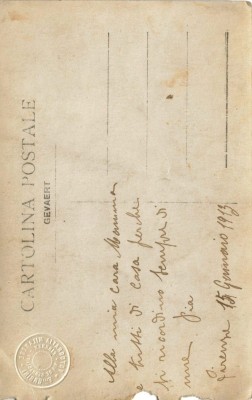 CARTOLINA POSTALE
GEVAERT
Alla mia cara Mamma
e tutti di casa perche
si ricordino sempre di
me
Firenze 15 Gennaio 1923